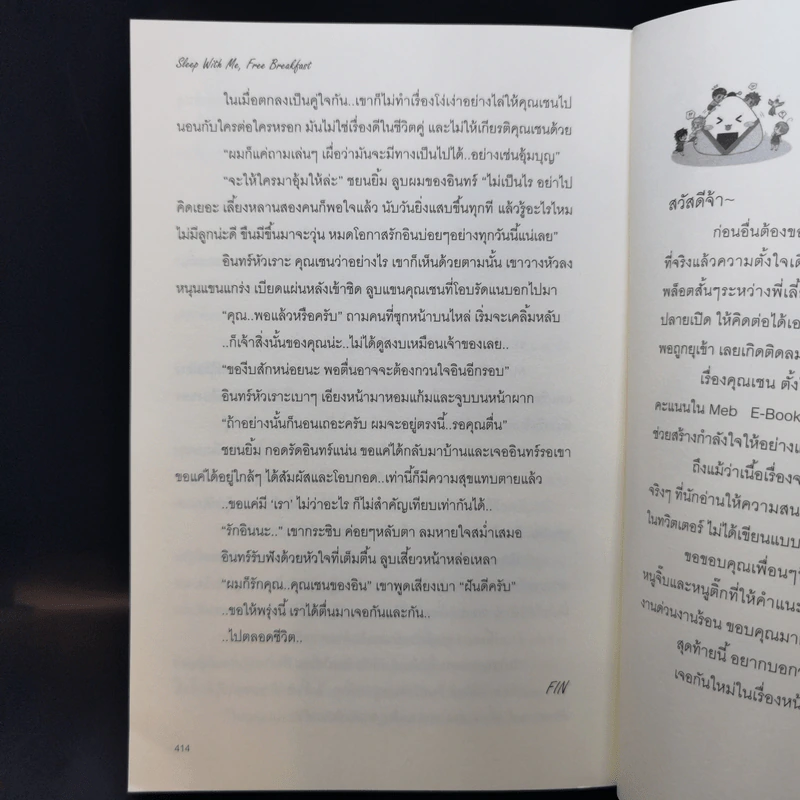 Sleep With Me, Free Breakfast
ในเมื่อตกลงเป็นคู่ใจกัน..เขาก็ไม่ทำเรื่องโง่เง่าอย่างไล่ให้คุณเซนไป
นอนกับใครต่อใครหรอก มันไม่ใช่เรื่องดีในชีวิตคู่ และไม่ให้เกียรติคุณเซนด้วย
“ผมก็แค่ถามเล่นๆ เผื่อว่ามันจะมีทางเป็นไปได้..อย่างเช่นอุ้มบุญ”
“จะให้ใครมาอุ้มให้ล่ะ” ชยนยิ้ม ลูบผมของอินทร์ “ไม่เป็นไร อย่าไป
คิดเยอะ เลี้ยงหลานสองคนก็พอใจแล้ว นับวันยิ่งแสบขึ้นทุกที แล้วรู้อะไรไหม
ไม่มีลูกน่ะดี ขืนมีขึ้นมาจะวุ่น หมดโอกาสรักอินบ่อยๆอย่างทุกวันนี้แน่เลย”
อินทร์หัวเราะ คุณเซนว่าอย่างไร เขาก็เห็นด้วยตามนั้น เขาวางหัวลง
หนุนแขนแกร่ง เบียดแผ่นหลังเข้าชิด ลูบแขนคุณเซนที่โอบรัดแนบอกไปมา
“คุณ..พอแล้วหรือครับ” ถามคนที่ซุกหน้าบนไหล่ เริ่มจะเคลิ้มหลับ
..ก็เจ้าสิ่งนั้นของคุณน่ะ..ไม่ได้ดูสงบเหมือนเจ้าของเลย..
“ของีบสักหน่อยนะ พอตื่นอาจจะต้องกวนใจอินอีกรอบ”
อินทร์หัวเราะเบาๆ เอียงหน้ามาหอมแก้มและจูบบนหน้าผาก
“ถ้าอย่างนั้นก็นอนเถอะครับ ผมจะอยู่ตรงนี้..รอคุณตื่น”
ชยนยิ้ม กอดรัดอินทร์แน่น ขอแค่ได้กลับมาบ้านและเจออินทร์รอเขา
ขอแค่ได้อยู่ใกล้ๆ ได้สัมผัสและโอบกอด..เท่านี้ก็มีความสุขแทบตายแล้ว
..ขอแค่มี ‘เรา’ ไม่ว่าอะไร ก็ไม่สำคัญเทียบเท่ากันได้..
“รักอินนะ..” เขากระซิบ ค่อยๆหลับตา ลมหายใจสม่ำเสมอ
อินทร์รับฟังด้วยหัวใจที่เต็มตื้น ลูบเสี้ยวหน้าหล่อเหลา
“ผมก็รักคุณ..คุณเซนของอิน” เขาพูดเสียงเบา “ฝันดีครับ”
..ขอให้พรุ่งนี้ เราได้ตื่นมาเจอกันและกัน..
..ไปตลอดชีวิต..
FIN
414
สวัสดีจ้า~
ก่อนอื่นต้องขอ
ที่จริงแล้วความตั้งใจเดิ
พล็อตสั้นๆระหว่างพี่เลี้
ปลายเปิด ให้คิดต่อได้เอ
พอถูกยุเข้า เลยเกิดติดลม
เรื่องคุณเซน ตั้ง
คะแนนใน Meb E-Book
ช่วยสร้างกำลังใจให้อย่างเ
ถึงแม้ว่าเนื้อเรื่องจ
จริงๆ ที่นักอ่านให้ความสน
ในทวิตเตอร์ ไม่ได้เขียนแบบ
ขอขอบคุณเพื่อนๆ
หนูจิ๊บและหนูติ๊กที่ให้คำแน
งานด่วนงานร้อน ขอบคุณมา
สุดท้ายนี้ อยากบอกว
เจอกันใหม่ในเรื่องหน้